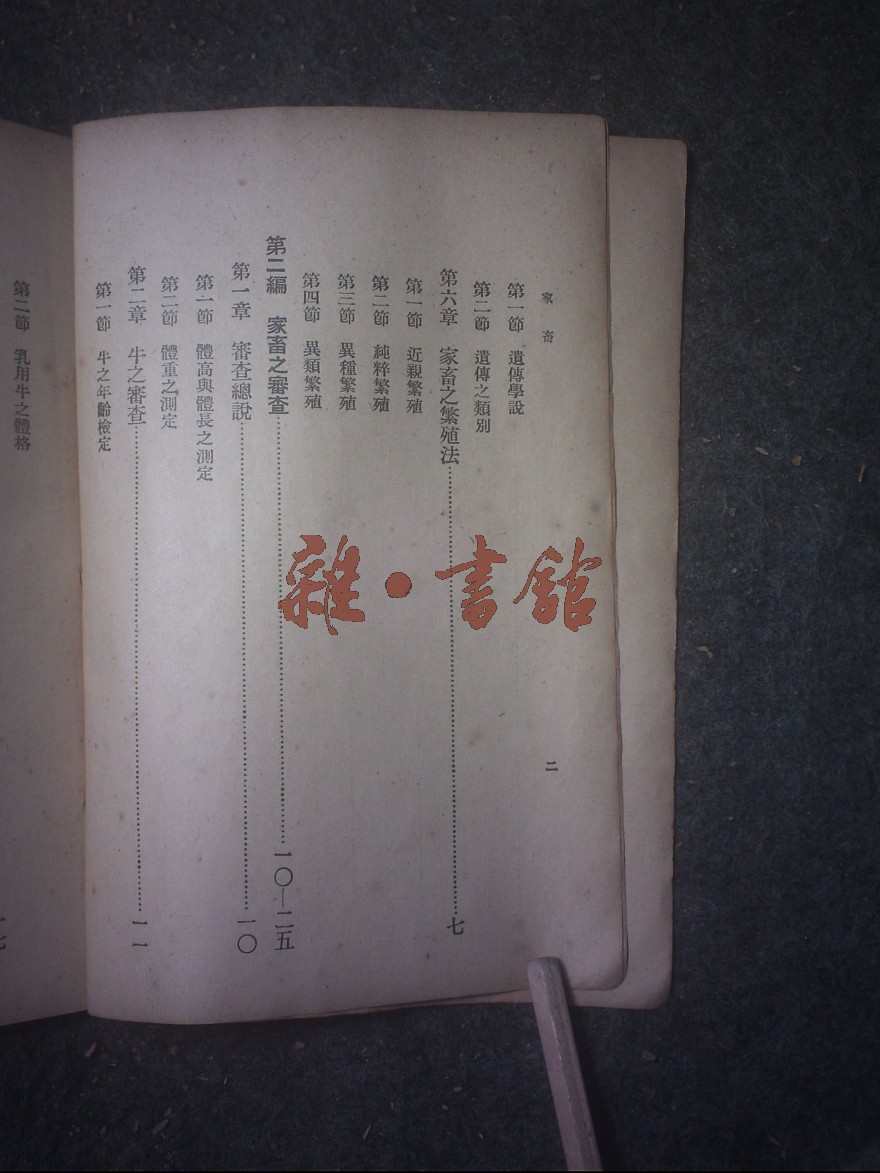 家畜
二
第一節 遺傳學說
第二節 遺傳之類別
第六章 家畜之繁殖法……七
第一節 近親繁殖
第二節 純粹繁殖
第三節 異種繁殖
第四節 異類繁殖
第二編 家畜之審查……一〇—二五
第一章 審查總說……一〇
第一節 體高與體長之測定
第二節 體重之測定
第二章 牛之審查……一一
第一節 牛之年齡檢定
第二節 乳用牛之體格
雜·書館